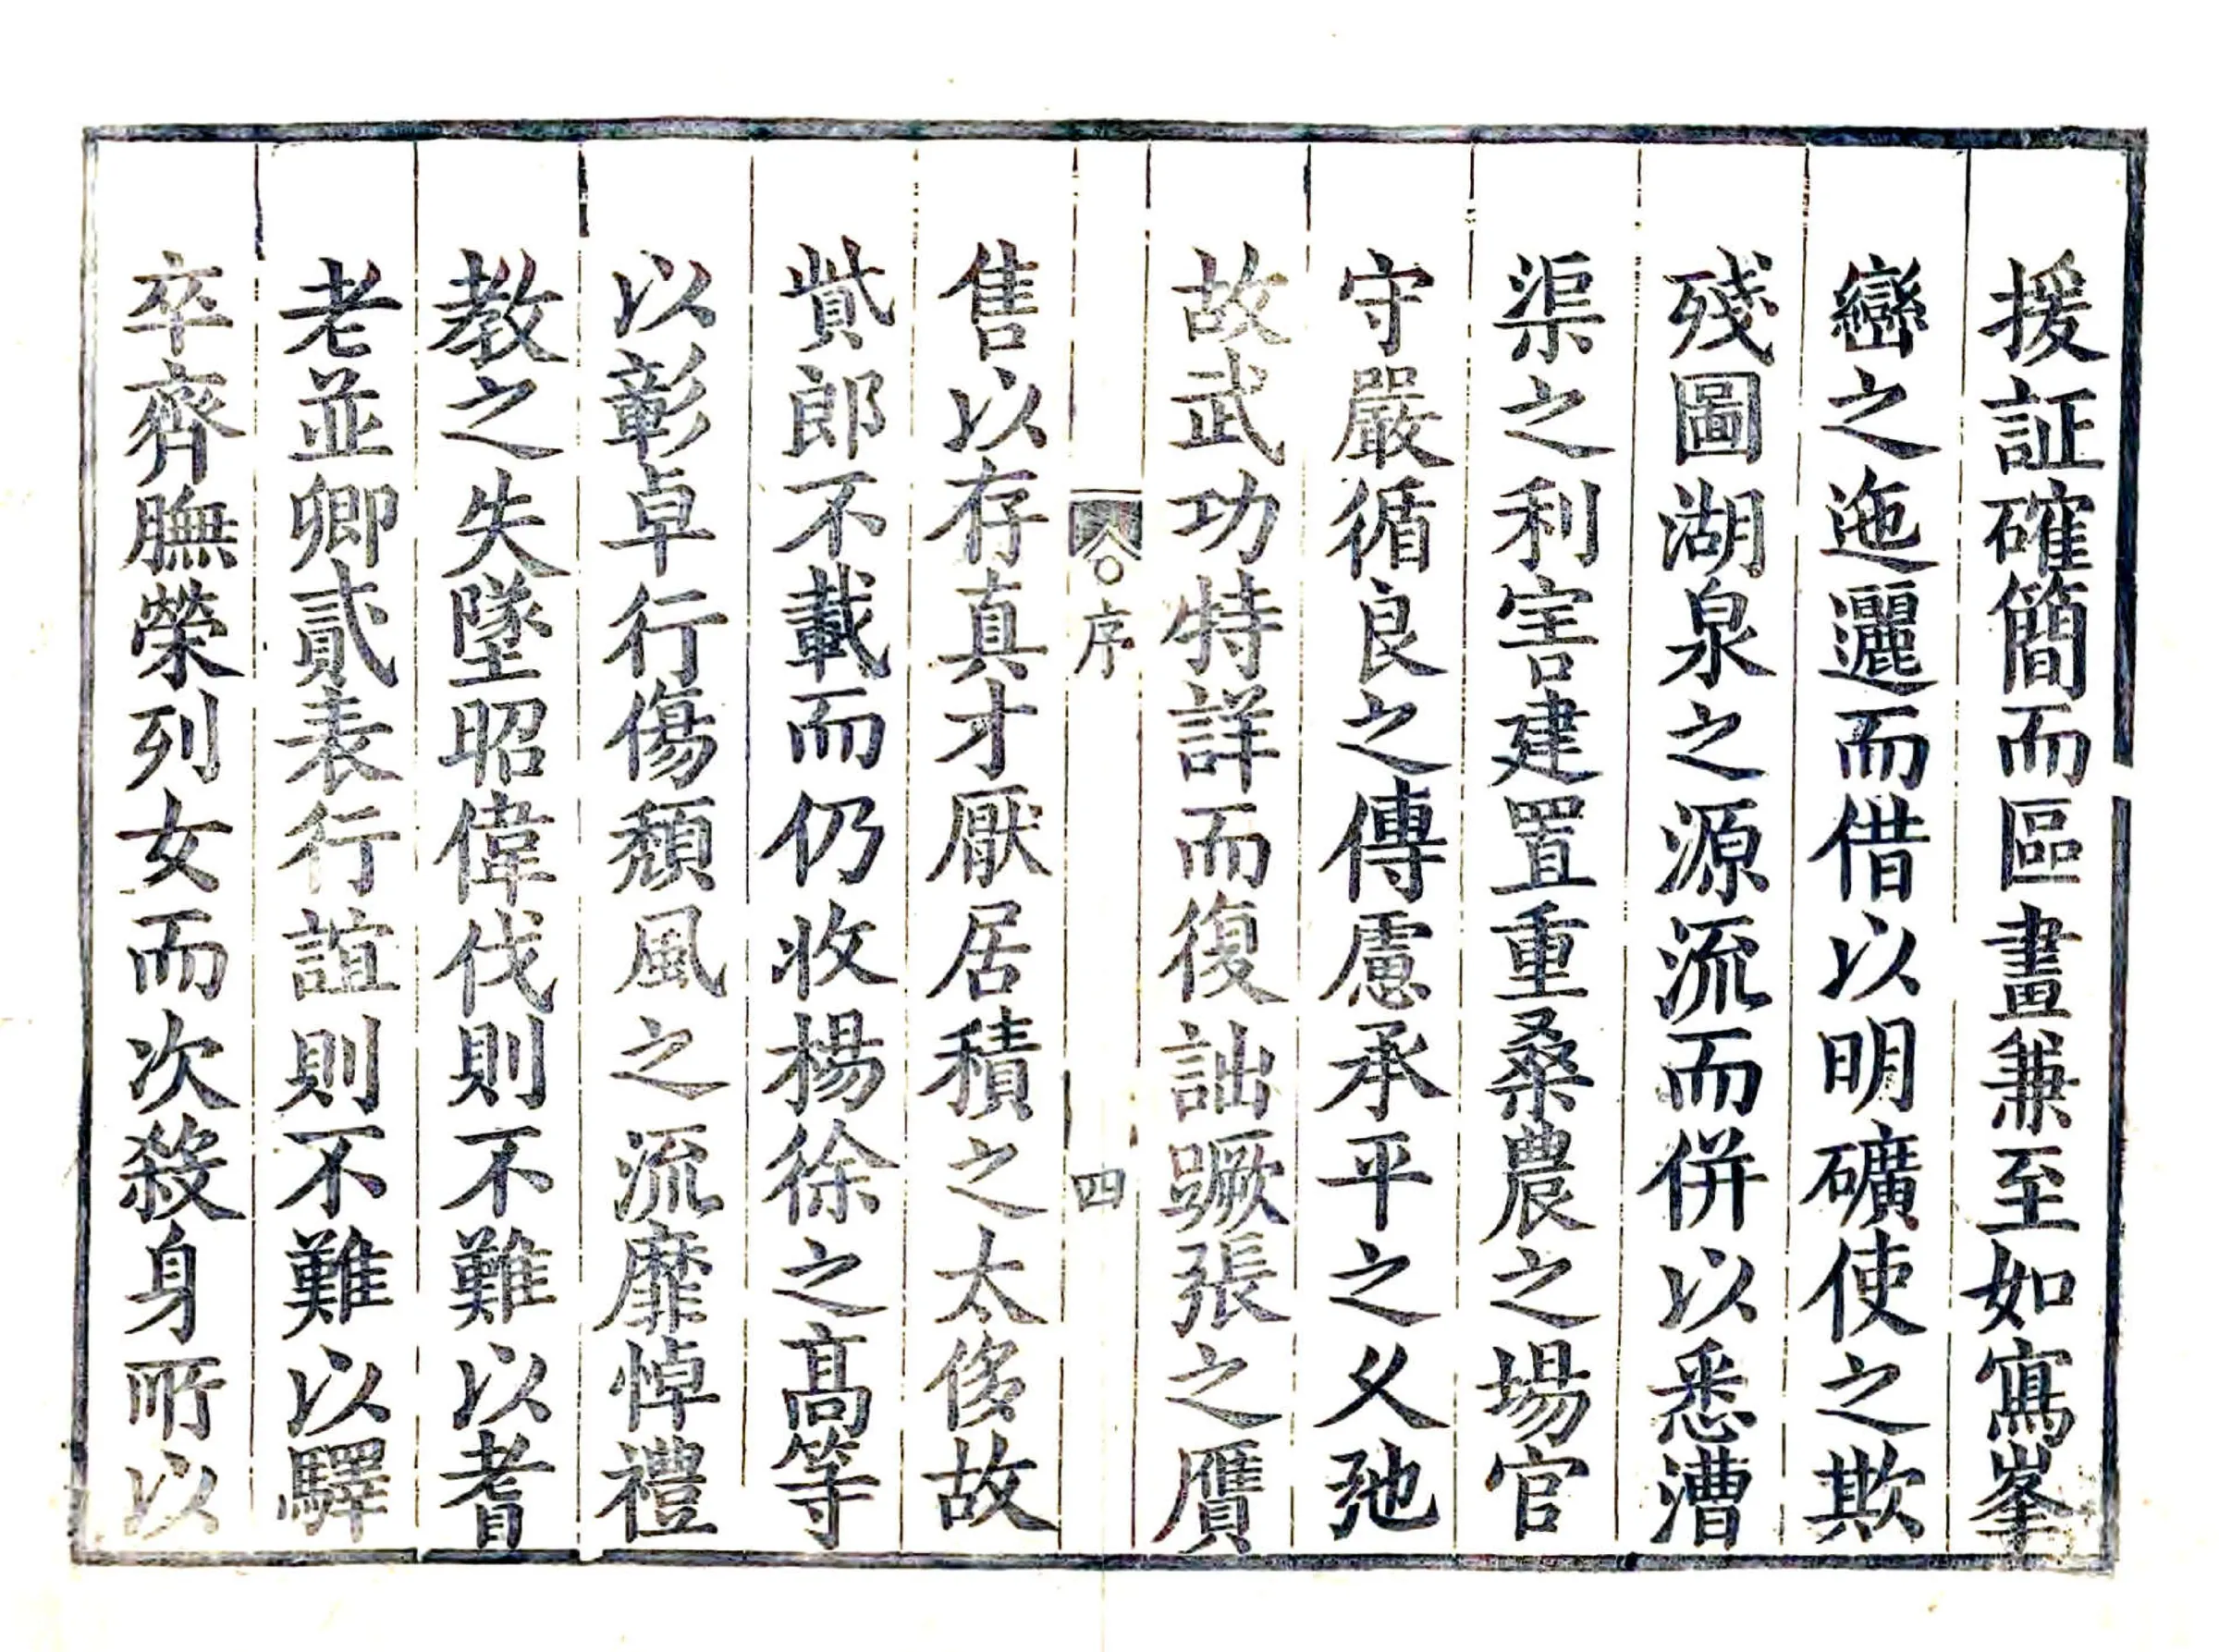 援証確簡而區畫兼至如寫峯
巒之迤邐而借以明礦使之欺
殘圖湖泉之源流而併以悉漕
渠之利害建置重桑農之場官
守嚴循良之傳慮承平之乆弛
故武功特詳而復詘蹶張之贋
序
四
售以存真才厭居積之太侈故
貲郎不載而仍收楊徐之髙等
以彰卓行傷頹風之流靡悼禮
教之失墜昭偉伐則不難以耆
老並卿貳表行誼則不難以驛
卒齊膴榮列女而次殺身所以